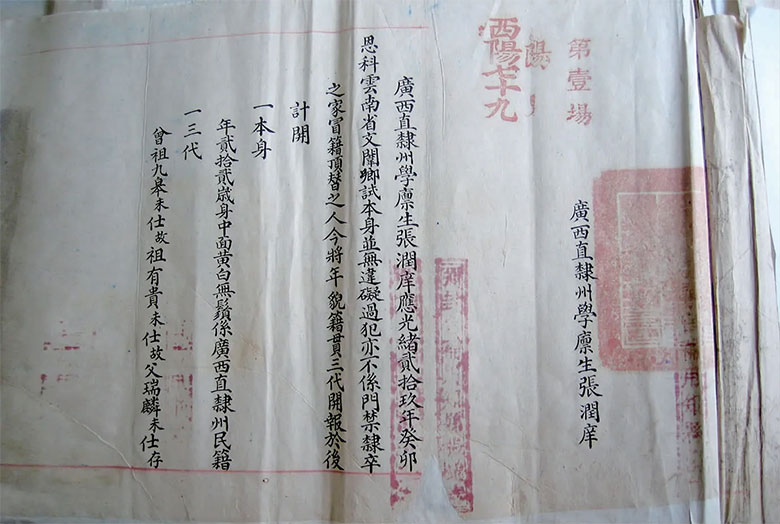 第壹場
廣西直隸州學廩生張潤庠
陽
酉陽七十九
廣西直隸州學廩生張潤庠應光緒貳拾玖年癸卯
恩科雲南省文闈鄉試本身並無違礙過犯亦不係門禁隸卒
之家冒籍頂替之人今將年貌籍貫三代開報於後
計開
一本身
年貳拾貳歲身中面黃白無鬚係廣西直隸州民籍
一三代
曾祖九皋未仕故祖有貴未仕故父瑞麟未仕存